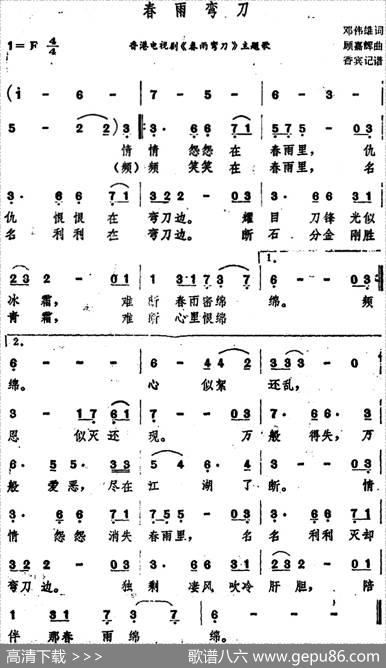 春雨弯刀
邓伟雄词
1=F 4/4 香港电视剧《春雨弯刀》主题歌 顾嘉辉曲
杏宾记谱
(1 - 6 - 7 - 6 - 6 - 3 -
5 - 2 2) 3 3 · 6 6 7 1 5 7 5 - 0 3
情 情 怨怨 在 春雨里， 仇
(频) 频 笑笑 在 春雨里， 名
3 · 6 6 7 1 3 2 2 - 0 3 6 · 6 7 3 1
仇 恨恨 在 弯刀边。 耀 目 刀锋 光似
名 利利 在 弯刀边。 断 石 分金 刚胜
1.
2 3 2 - 0 1 1 3 1 7 3 7 6 - - 0 3
冰 霜， 难 断 春雨密绵 绵。 频
青 霜， 难 断 心里恨绵
2.
6 - - - 6 - 4 4 2 3 3 3 - 0
绵。 心 似絮 还乱，
3 - 1 7 6 1 7 - - 0 3 7 · 6 6 · 3
恩 似灭还 现。 万 般 得失，万
6 · 5 5 · 3 3 5 4 6 · 4 3 - - 0 3
般 爱恶，尽在 江 湖 了 断。 情
3 · 6 6 7 1 7 5 5 - 0 3 3 · 6 6 7 1
情 怨怨 消失 春雨里， 名 名 利利 灭却
3 2 2 - 0 3 6 · 6 7 3 1 2 3 2 - 0 1
弯刀边。 独 剩 凄风 吹冷 肝胆，陪
1 3 1 7 3 7 6 - - -
伴 那春 雨绵 绵。
高清下载 >>> 歌谱八六 www.gepu86.com